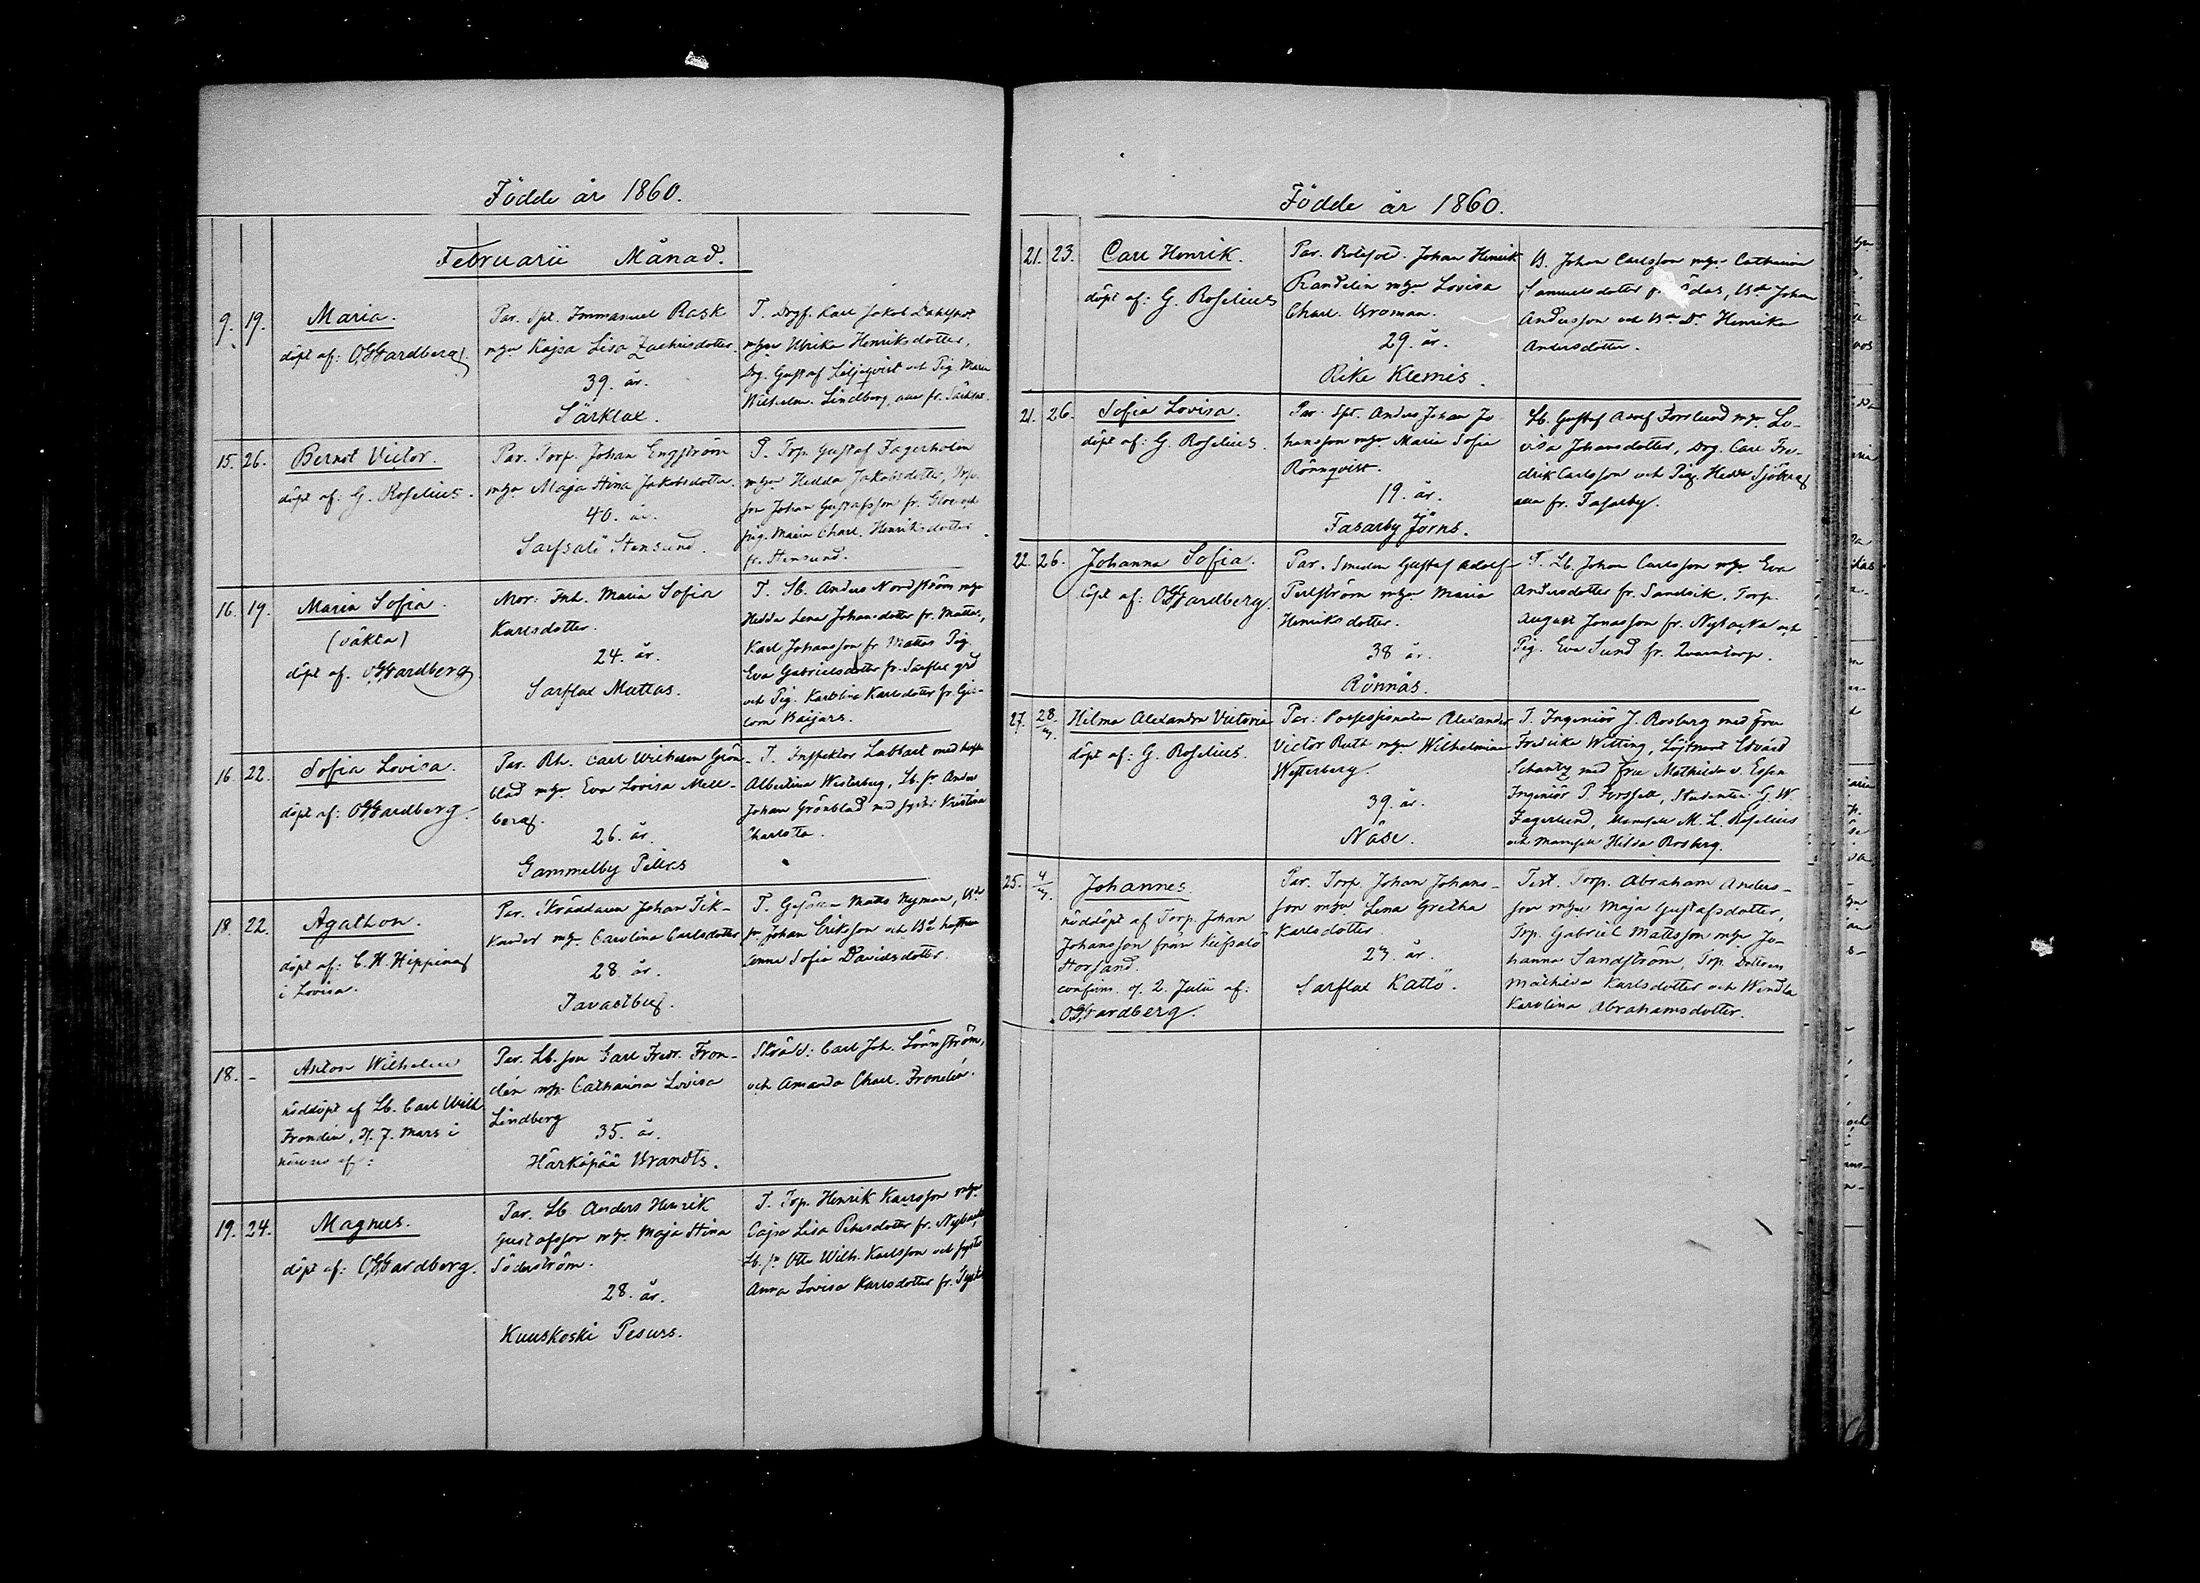 Födde år 1860.
Februarii Månad.
9. 19. Maria.
döpt af: O.G. Gardberg.
Par. Spt. Immanuel Rask
m.h. Kajsa Lisa Zachrisdotter.
39. år.
Särklax.
T. Drgf. Karl Jakob Dahlqvist
m.h. Ulrika Henriksdotter,
Drg. Gustaf Liljeqvist och Pig. Maria
Wilhelm. Lindberg, alla fr. Särklax.
15. 26. Bernt Victor.
döpt af: G. Roselius.
Par. Torp. Johan Engström
m.h. Maja Stina Jakobsdotter.
40. år.
Sarfsalö Stensund.
T. Torp. Gustaf Fagerholm
m.h. Hedda Jakobsdotter, Torp.
son Johan Gustafsson fr.
Pig. Maria Charl. Henriksdotter
fr. Stensund.
16. 19. Maria Sofia.
(oäkta)
döpt af. O.G. Gardberg
Mor: Inh. Maria Sofia
Karlsdotter.
24. år.
Sarflax Mattas.
T. Lb. Anders Nordström m.h.
Hedda Lena Johansdotter fr. Mattas,
Karl Johansson fr. Mattas Pig.
Eva Gabrielsdotter fr. Sarflax grd
och Pig. Karolina Karlsdotter fr. Gis-
lom Baijars.
16. 22. Sofia Lovisa.
döpt af: O.G. Gardberg.
Par. Rh. Carl Wilhelm Grön-
blad m.h. Eva Lovisa Mell-
berg.
26. år.
Gammelby Pellas
T. Inspektor Labbart med hustru
Albertina Westerberg, Lb. sn Anders
Johan Grönblad med syster Kristina
Charlotta.
18. 22. Agathon.
döpt af: C. H. Hipping
i Lovisa.
Par. Skräddaren Johan Tik-
kander m.h. Carolina Carlsdotter
28 år.
Tavastby.
T. Matts Nyman, Bd
sn Johan Eriksson och Bd hustrun
Anna Sofia Davidsdotter.
18. - Anton Wilhelm
nöddöpt af Lb. Carl Wilh.
Frondén, d. 7. Mars i
af:
Par. Lb. son Carl Fredr. Fron-
dén m.h. Catharina Lovisa
Lindberg
35. år.
Härkäpää Brandts.
Skrädd: Carl Joh. Lönnström,
och Amanda Charl. Frondén.
19. 24. Magnus.
döpt af: O.G. Gardberg.
Par. Lb. Anders Henrik
Gustafsson m.h. Maja Stina
Söderström.
28. år.
Kuuskoski Pesurs.
T. Torp. Henrik Karlsson m.h.
Cajsa Lisa Petersdotter fr. Nybacka,
Lb. sn Otto Wilh. Karlsson och syster
Anna Lovisa Karlsdotter fr.
Födde år 1860.
21. 23. Carl Henrik.
döpt af: G. Roselius
Par. Johan Henrik
Randelin m.h. Lovisa
Charl. Broman.
29. år.
Rike Klemis.
B. Johan Carlsson m.h. Catharina
Samuelsdotter Johan
Andersson och Henrika
Andersdotter.
21. 26. Sofia Lovisa.
döpt af: G. Roselius.
Par. Spt. Anders Johan Jo-
hansson m.h. Maria Sofia
Rönnqvist.
19. år.
Fasarby Jörns.
Lb. Gustaf Adolf Forslund m.h. Lo-
visa Johansdotter, Drg. Carl Fre-
drik Carlsson och Pig. Hedda Sjöberg
alla fr. Fasarby.
22. 26. Johanna Sofia.
döpt af: O.G. Gardberg.
Par. Smeden Gustaf Adolf
Perlström m.h. Maria
Henriksdotter.
38 år.
Rönnäs.
T. Lb. Johan Carlsson m.h. Eva
Andersdotter fr. Sandvik, Torp.
August Jonasson fr. Nybacka och
Pig. Eva Sund fr.
27. 28. Hilma Alexandra Victoria
döpt af: G. Roselius.
Par: Possessionaten Alexander
Victor Ruth m.h. Wilhelmina
Westerberg.
39. år.
Näse.
T. Ingeniör J. Rosberg med fru
Fredrike Witting, Löjtnant Edvard
Schantz med fru Mathilda v. Essen
Ingeniör P. Forssell, Studenten G. W.
Fagerlund, Mamsell M. L. Roselius
och Mamsell Hilda Rosberg.
25. 4 Johannes.
nöddöpt af Torp. Johan
Johansson från Kufsalö
Storsand.
confirm. d. 2. Julii af:
O.G. Gardberg.
Par. Torp. Johan Johans-
son m.h. Lena Gretha
Karlsdotter.
27. år.
Sarflax Kattö.
Test. Torp. Abraham Anders-
son m.h. Maja Gustafsdotter,
Torp. Gabriel Mattsson m.h. Jo-
hanna Sandström, Torp. Dottern
Mathilda Karlsdotter och Wendla
Karolina Abrahamsdotter.